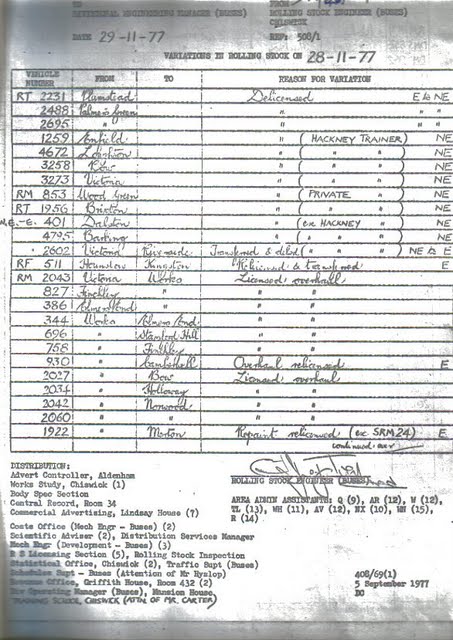 TO
DIVISIONAL ENGINEERING MANAGER (BUSES) ROLLING STOCK ENGINEER (BUSES)
CHISWICK
DATE 29-11-77 REF: 508/1
VARIATIONS IN ROLLING STOCK ON 28-11-77
VEHICLE NUMBER FROM TO REASON FOR VARIATION
RT 2231 Plumstead Delicensed E & NE
2488 Palmers Green " " "
2695 " " " "
1259 Enfield " (HACKNEY TRAINER) NE
4672 Loughton " ( " " ) NE
3258 Bow " ( " " ) NE
3273 Victoria " ( " " ) NE
RM 853 Wood Green " (PRIVATE " ) NE
RT 1956 Brixton " ( " " ) NE
N.E.-E. 401 Dalston " (ex HACKNEY " ) NE
4795 Barking " ( " " " ) NE
2602 Victoria Riverside Transferred & delsd ( " " " ) NE & E
RF 511 Hounslow Kingston Relicensed & transferred E
RM 2043 Victoria Works Licensed overhaul
827 Finchley " " "
386 Elmers End " " "
344 Works Elmers End " "
696 " Stamford Hill " "
758 " Finchley " "
930 " Camberwell Overhaul relicensed E
2027 " Bow Licensed overhaul
2034 " Holloway " "
2042 " Norwood " "
2060 " " " "
1922 " Merton Repaint relicensed (ex SRM24) E
continued over
DISTRIBUTION:
Advert Controller, Aldenham
Works Study, Chiswick (1)
Body Spec Section
Central Record, Room 34
Commercial Advertising, Lindsay House (7)
ROLLING STOCK ENGINEER (BUSES)
AREA ADMIN ASSISTANTS: Q (9), AR (12), W (12),
TL (13), WH (11), AV (12), NX (10), MN (15),
R (14)
Costs Office (Mech Engr - Buses) (2)
Scientific Adviser (2), Distribution Services Manager
Mech Engr (Development - Buses) (3)
R S Licensing Section (5), Rolling Stock Inspection
Statistical Office, Chiswick (2), Traffic Supt (Buses)
Schedules Supt - Buses (Attention of Mr Hyslop)
Revenue Office, Griffith House, Room 432 (2)
Operating Manager (Buses), Mansion House,
TRAINING SCHOOL, CHISWICK (ATTN. OF MR. CARTER)
408/69(1)
5 September 1977
DO